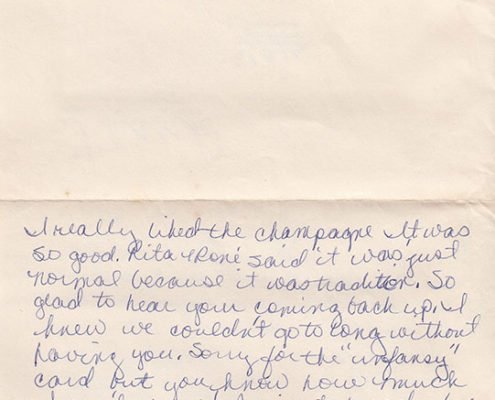 I really liked the champagne It was
so good. Rita & René said it was just
normal because it was tradition. So
glad to hear your coming back up. I
knew we couldn't go to long without
having you. Sorry for the "unfancy"
card but you know how much